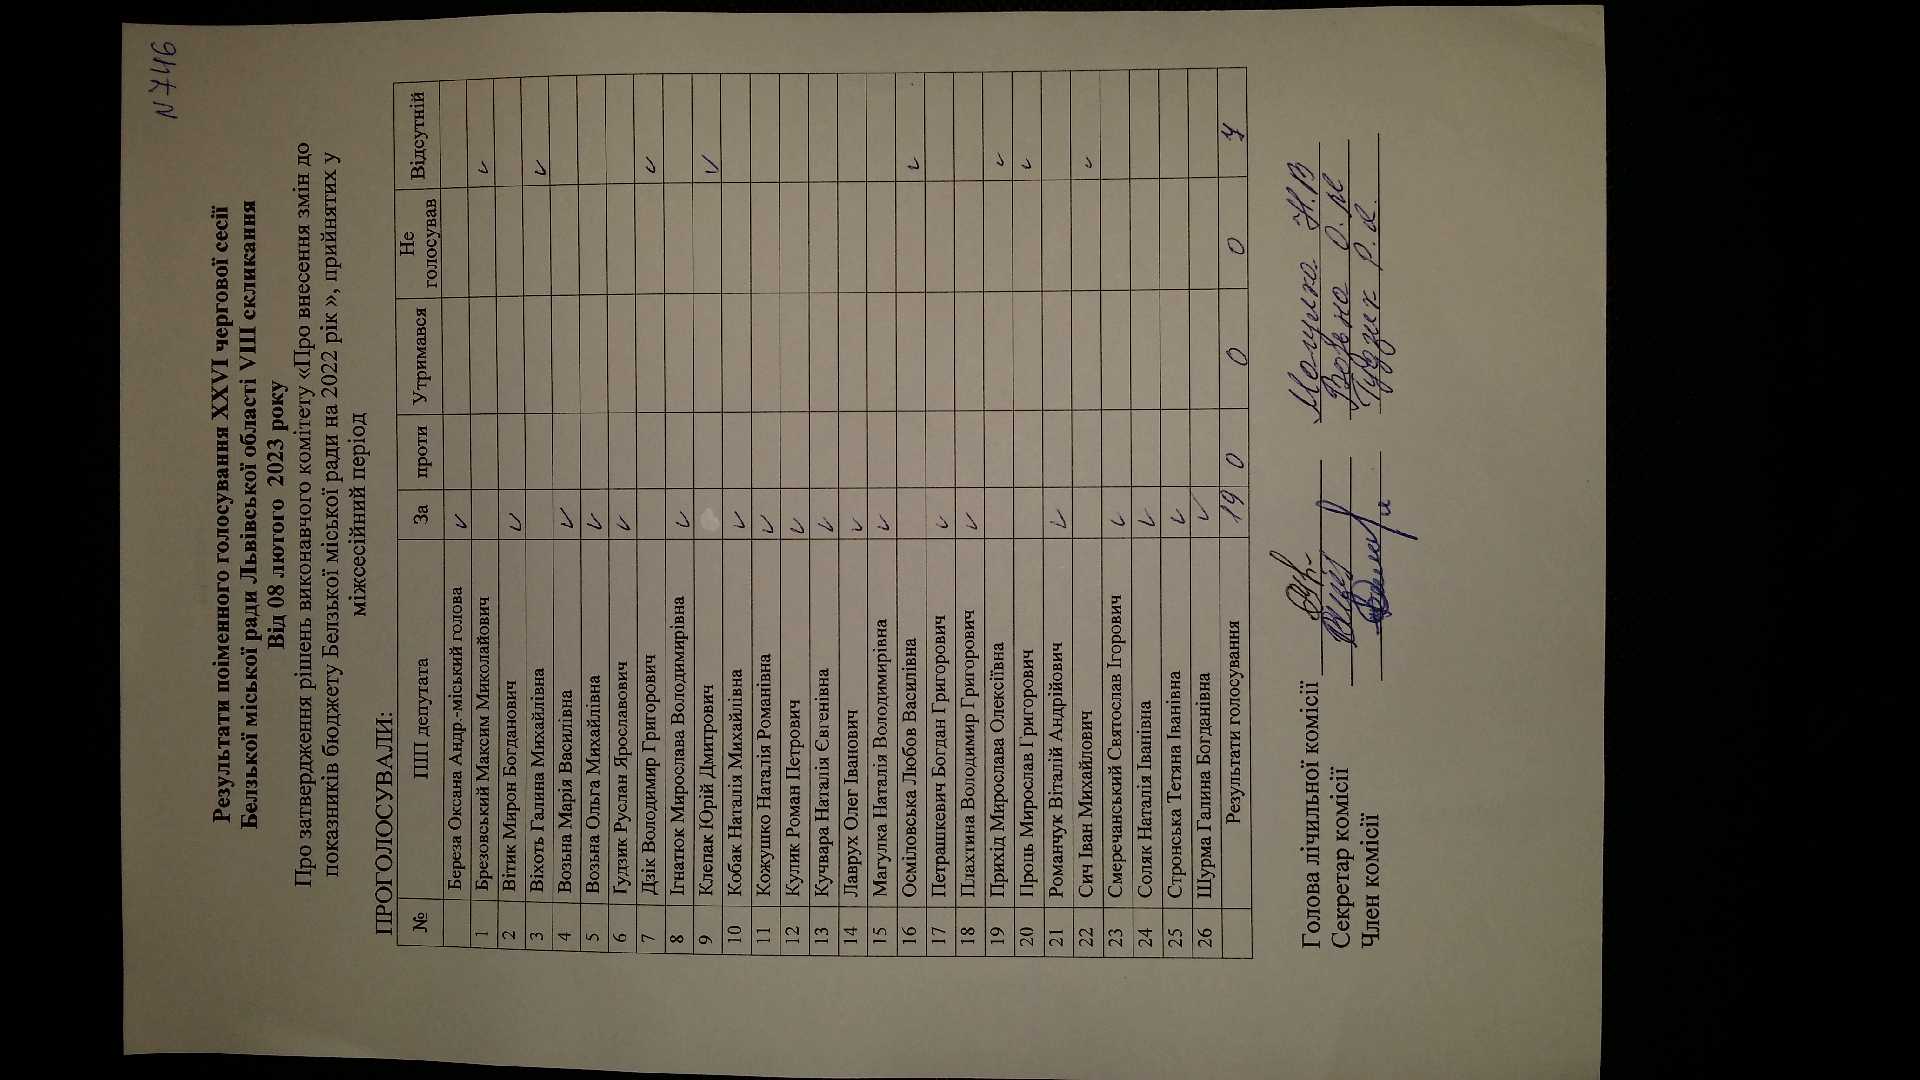 N 746
Результати поіменного голосування XXVI чергової сесії
Белзької міської ради Львівської області VIII скликання
Від 08 лютого 2023 року
Про затвердження рішень виконавчого комітету «Про внесення змін до
показників бюджету Белзької міської ради на 2022 рік », прийнятих у
міжсесійний період
ПРОГОЛОСУВАЛИ:
№ ПІП депутата За проти Утримався Не голосував Відсутній
Береза Оксана Андр.-міський голова ✓
1 Брезовський Максим Миколайович ✓
2 Вітик Мирон Богданович ✓
3 Віхоть Галина Михайлівна ✓
4 Возьна Марія Василівна ✓
5 Возьна Ольга Михайлівна ✓
6 Гудзик Руслан Ярославович ✓
7 Дзік Володимир Григорович ✓
8 Ігнатюк Мирослава Володимирівна ✓
9 Клепак Юрій Дмитрович ✓
10 Кобак Наталія Михайлівна ✓
11 Кожушко Наталія Романівна ✓
12 Кулик Роман Петрович ✓
13 Кучвара Наталія Євгенівна ✓
14 Лаврух Олег Іванович ✓
15 Магулка Наталія Володимирівна ✓
16 Осміловська Любов Василівна ✓
17 Петрашкевич Богдан Григорович ✓
18 Плахтина Володимир Григорович ✓
19 Прихід Мирослава Олексіївна ✓
20 Проць Мирослав Григорович ✓
21 Романчук Віталій Андрійович ✓
22 Сич Іван Михайлович ✓
23 Смеречанський Святослав Ігорович ✓
24 Соляк Наталія Іванівна ✓
25 Стронська Тетяна Іванівна ✓
26 Шурма Галина Богданівна ✓
Результати голосування 19 0 0 0
Голова лічильної комісії Н.В
Секретар комісії Возьна О. М
Член комісії Гудзик Р. Я.